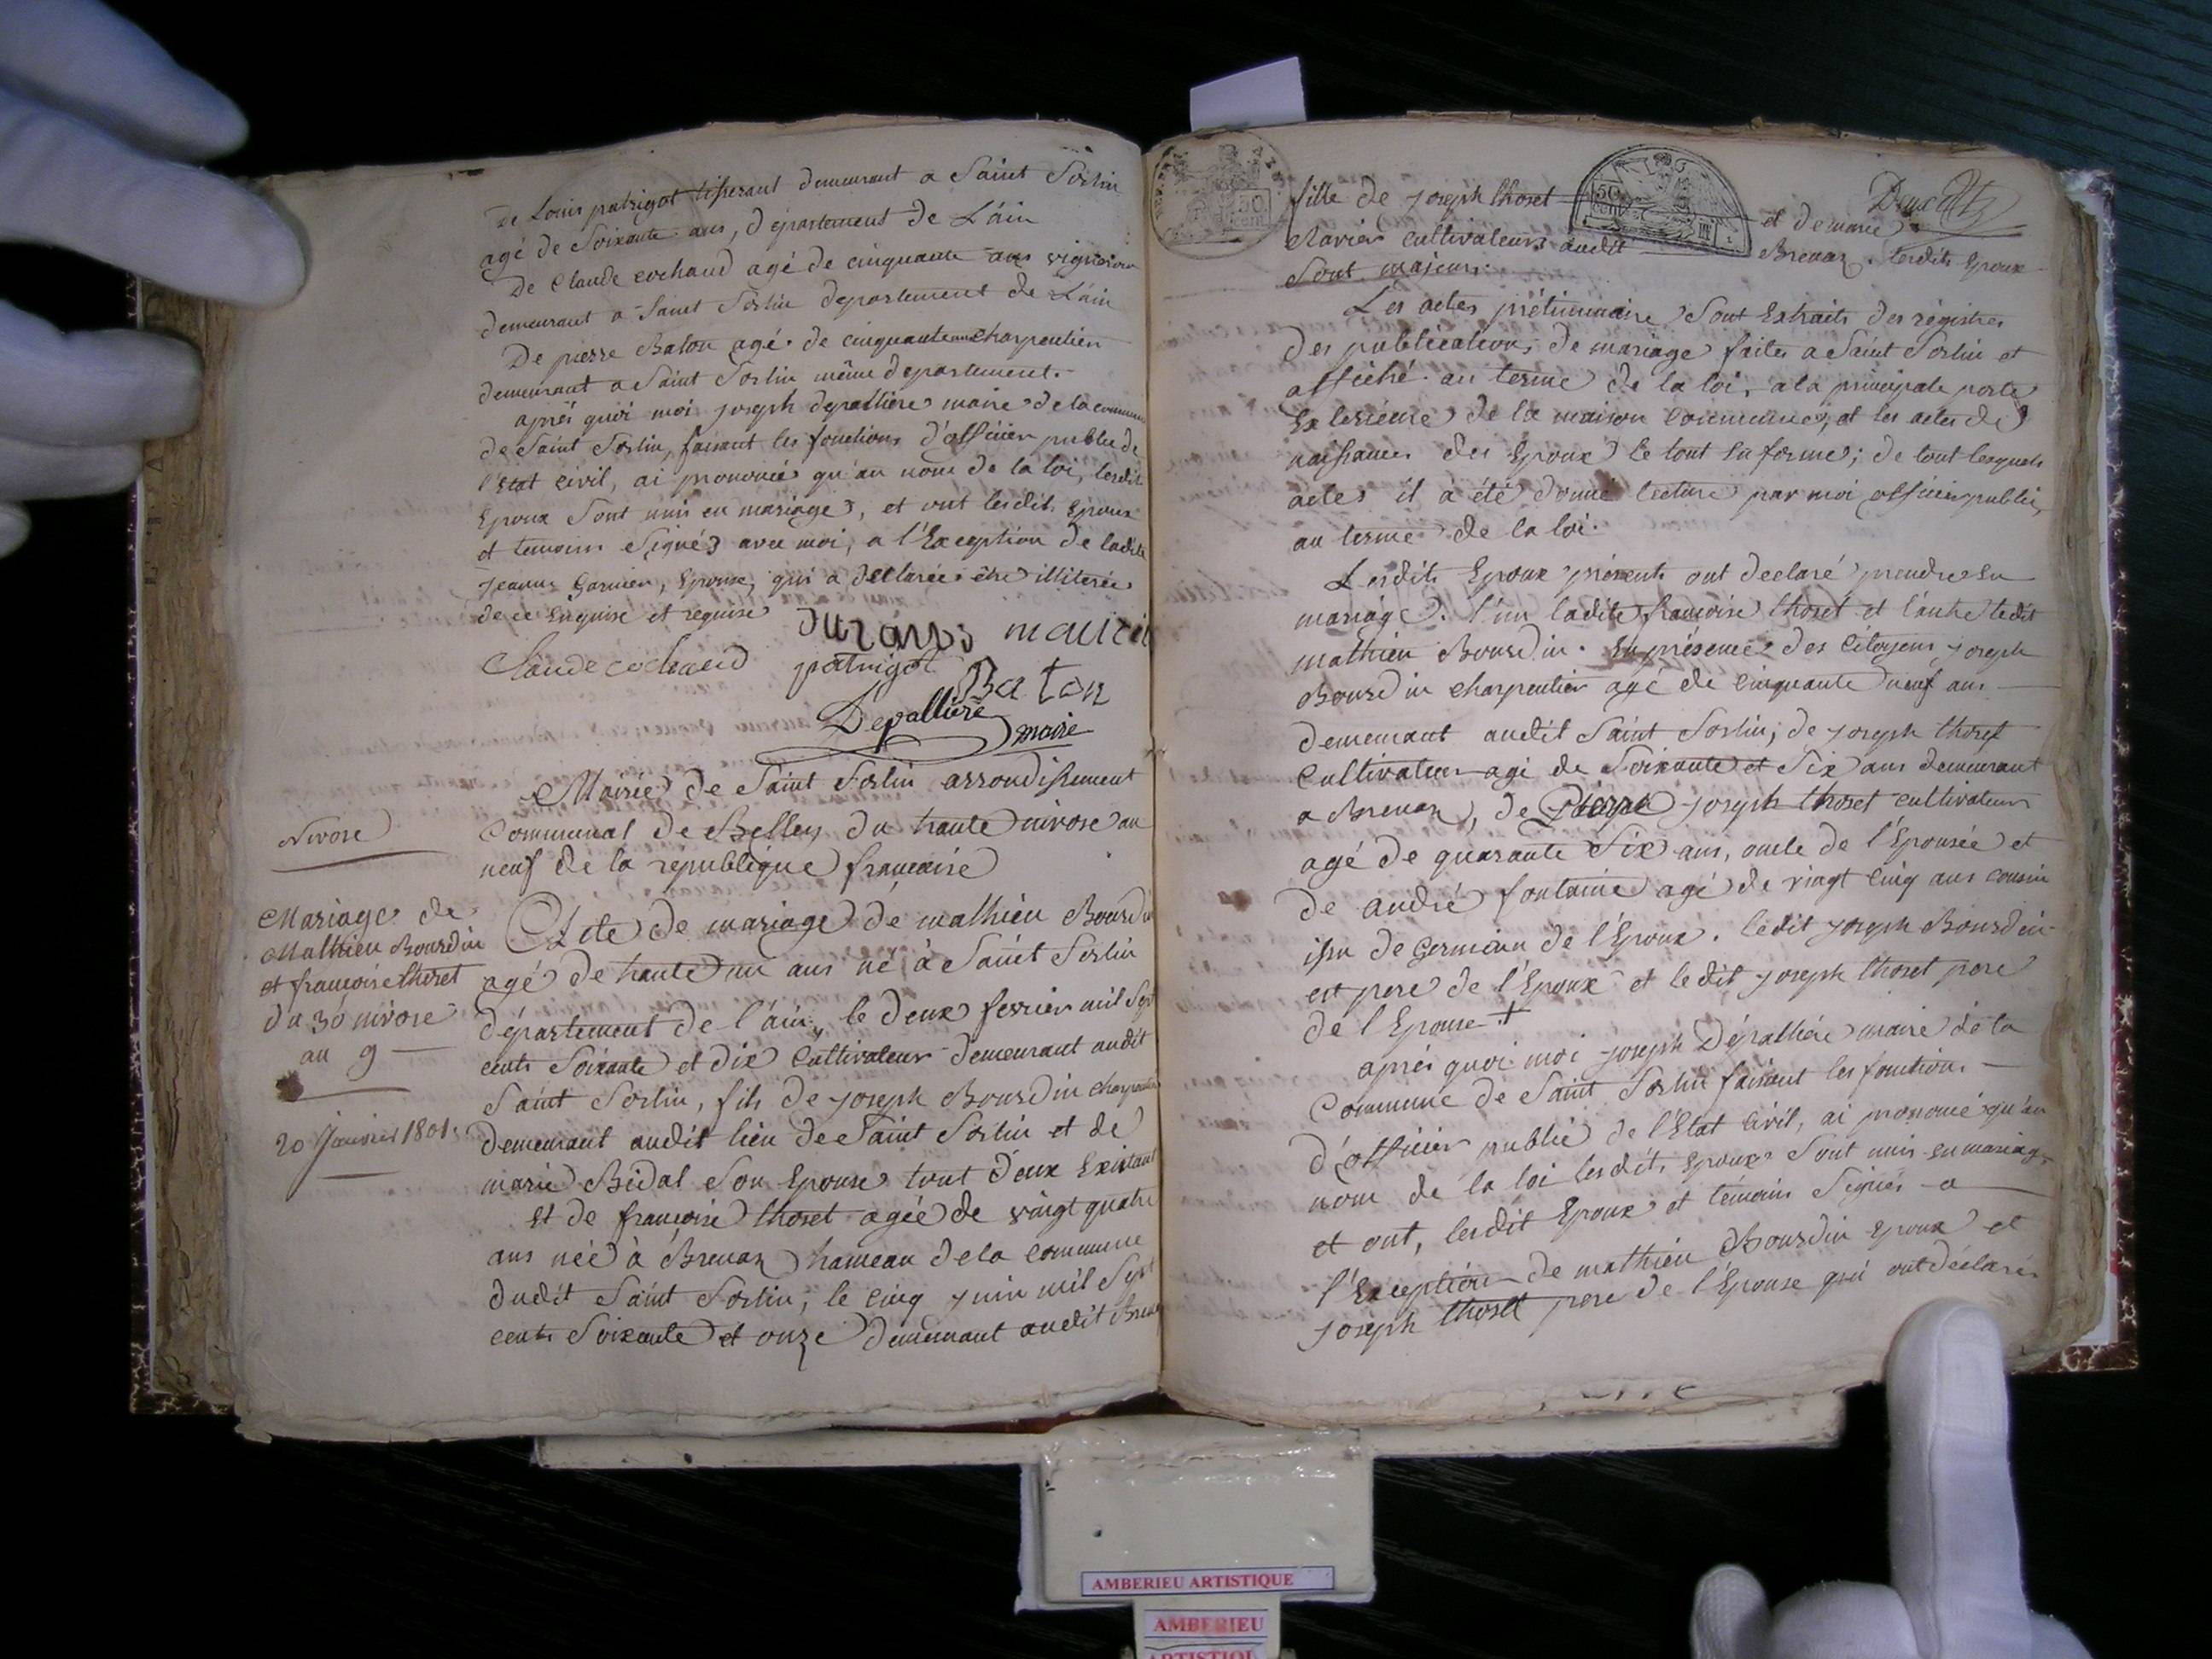 De Louis patrigot tisserant demeurant a Saint Sorlin
agé de Soixante ans, département de L'áin
De Claude cochaud agé de cinquante ans vigneron
demeurant a Saint Sorlin departement de L'áin
De pierre Baton agé de cinquante ans charpentier
demeurant a Saint Sorlin même departement.
aprés quoi moi joseph depalliere maire de la commune
de Saint Sorlin, faisant les fonctions d'officier public de
l'Etat civil, ai prononcé qu'au nom de la loi, lesdits
Epoux Sont unis en mariage, et ont lesdits Epoux
et temoins Signés avec moi, a l'Exception de ladite
jeanne Garnier, Epouse, qui a declarée être illiterée
de ce Enquise et requise
Claude cochaud patrigot
Baton
Depalliere
maire
Nivose
Mairie de Saint Sorlin arrondissement
Communal de Belley du trante nivose an
neuf de la république francaise
Mariage de
Mathieu Bourdin
et françoise thoset
du 30 nivose
an 9
20 Janvier 1801.
Acte de mariage de mathieu Bourdin
agé de trante un ans né à Saint Sorlin
département de l'áin, le deux fevrier mil Sept
cents Soixante et dix Cultivateur demeurant audit
Saint Sorlin, fils de joseph Bourdin charpentier
demeurant audit lieu de Saint Sorlin et de
marie Bidal Son Epouse tout deux Existant
Et de françoise thoset agée de vaingt quatre
ans née à Brenaz hameau de la commune
dudit Saint Sorlin, le cinq juin mil Sept
cents Soixante et onze demeurant audit Brenaz
50 cent
50 cent
fille de joseph thoset et de marie
Ravier cultivateurs audit Brenaz. lesdits Epoux
Sont majeurs.
Les actes préliminaire Sont Extraits des régistres
des publications de mariage faites a Saint Sorlin et
affiché au terme de la loi, a la principale porte
Exterieure de la maison commune, et les actes de
naissances des Epoux le tout En forme; de tout lesquels
actes il à été donné lecture par moi officier public,
au terme de la loi.
Lesdits Epoux présents ont declaré prendre En
mariage. l'un ladite francoise thoset et l'autre ledit
mathieu Bourdin. En présence des Citoyens joseph
Bourdin charpentier agé de Cinquante neuf ans
demeurant audit Saint Sorlin; de joseph thoset
Cultivateur agé de Soixante et Six ans demeurant
a Brenaz, de joseph thoset cultivateur
agé de quarante Six ans, oncle de l'Epousée et
de andré fontaine agé de viagt cinq ans cousin
issu de Germain de l'Epoux. ledit joseph Bourdin
est pere de l'Epoux et ledit joseph thoset pere
de l'Epouse
aprés quoi moi joseph Dépalliére maire de la
Commune de Saint Sorlin faisant les fonctions
d'officier public de l'Etat Civil, ai prononcé qu'au
nom de la loi lesdits Epoux Sont unis en mariage
et ont, lesdit Epoux et témoins Signés a
l'Exception de mathieu Bourdin epoux et
joseph thoset pere de l'Epouse qui ont déclaré
AMBERIEU ARTISTIQUE
AMBERIEU